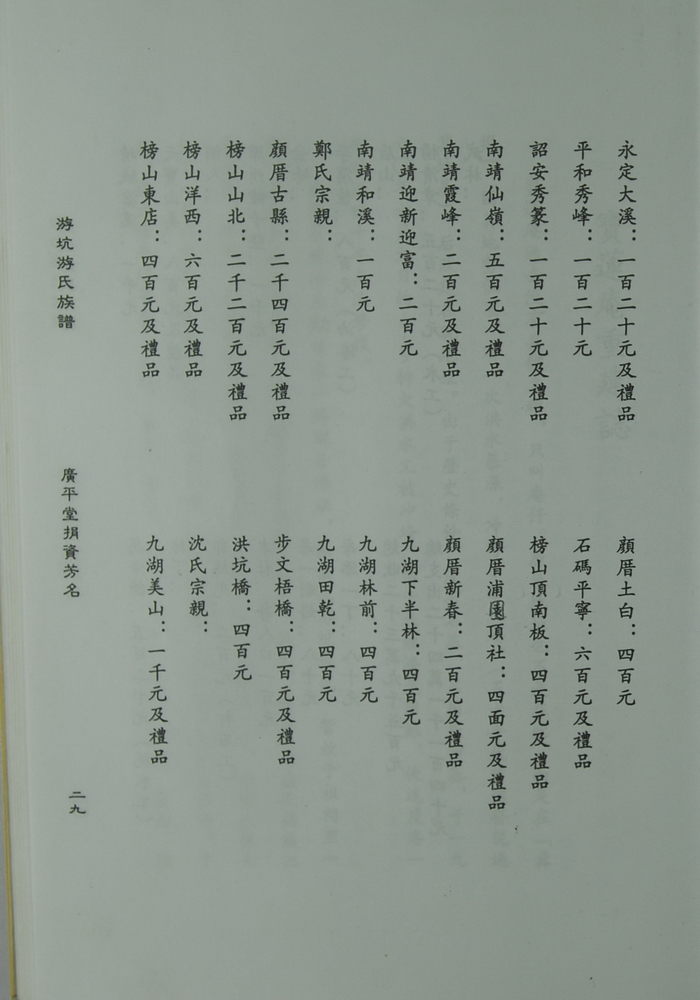 永定大溪：一百二十元及禮品
平和秀峰：一百二十元
詔安秀篆：一百二十元及禮品
南靖仙嶺：五百元及禮品
南靖霞峰：二百元及禮品
南靖迎新迎富：二百元
南靖和溪：一百元
鄭氏宗親：
顏厝古縣：二千四百元及禮品
榜山山北：二千二百元及禮品
榜山洋西：六百元及禮品
榜山東店：四百元及禮品
顏厝土白：四百元
石碼平寧：六百元及禮品
榜山頂南板：四百元及禮品
顏厝浦園頂社：四面元及禮品
顏厝新春：二百元及禮品
九湖下半林：四百元
九湖林前：四百元
九湖田乾：四百元
步文梧橋：四百元及禮品
洪坑橋：四百元
沈氏宗親：
九湖美山：一千元及禮品
游坑游氏族譜
廣平堂捐資芳名
二九